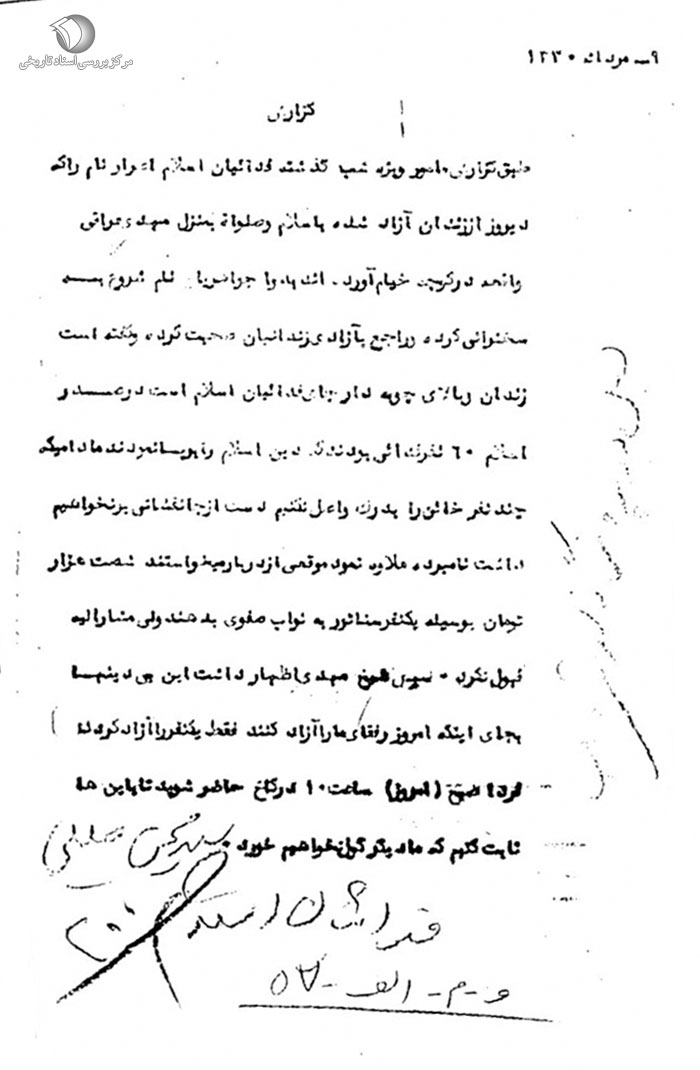 مرکز بررسی اسناد تاریخی
۹ مرداد ۱۳۳۰
گزارش
طبق گزارش مامور ویژه شب گذشته فدائیان اسلام نام را که
دیروز از زندان آزاد شده با سلام و صلواة بمنزل مهدی عراقی
واقعه در کوچه خیام آورد. اند شروع به
سخنرانی کرده و راجع بآزادی زندانیان صحبت کرده و گفته است
زندان و بالای چوبه دار جای فدائیان اسلام است در صدر
اسلام ۶۰ نفر فدائی بودند که دین اسلام را نمودند مادامیکه
چند نفر خائن را بدرك واصل نکنیم دست از جانفشانی برنخواهیم
داشت نامبرده علاوه نمود موقعی از دربار میخواستند شصت هزار
تومان بوسیله یکنفر سناتور به نواب صفوی بدهند ولی مشارالیه
قبول نکرد ۰ سپس شیخ مهدی اظهار داشت این بی دینها
بجای اینکه امروز رفقای ما را آزاد کنند فقط یکنفر را آزاد کردند
فردا صبح (امروز) ساعت ۱۰ در کاخ حاضر شوید تا باین ها
ثابت کنیم که ما دیگر گول نخواهیم خورد ۰
فدائیان اسلام
و - م - الف - ۵۷